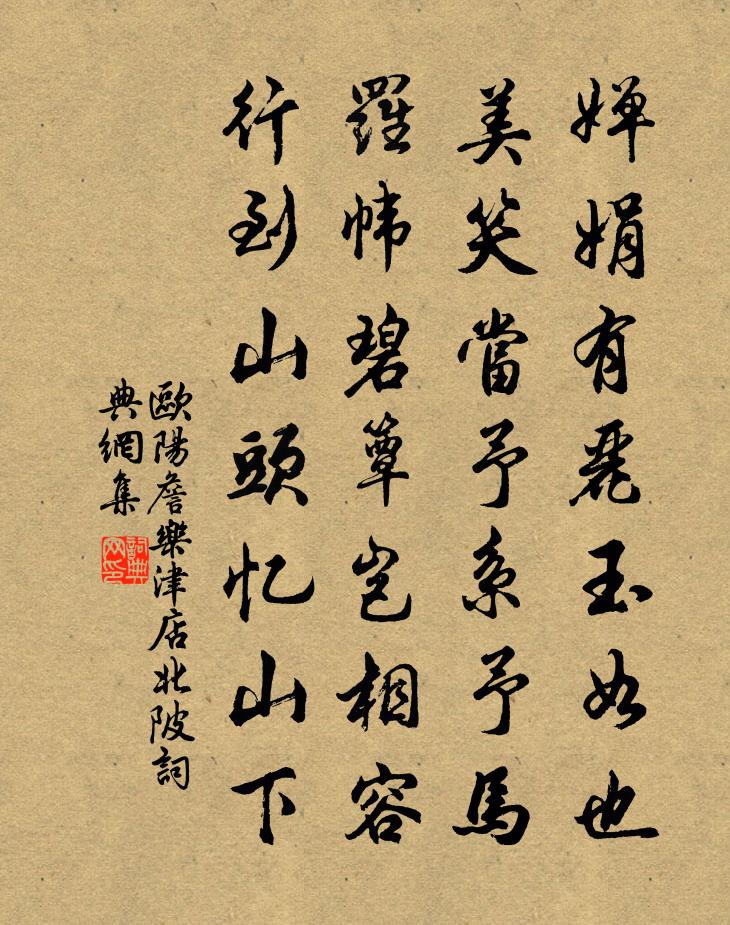 嬋娟有麗玉如也
美笑當予系予馬
羅幃碧簟豈相容
行到山頭忆山下
歐陽詹樂津店北陂詞
典網集
詞典网印